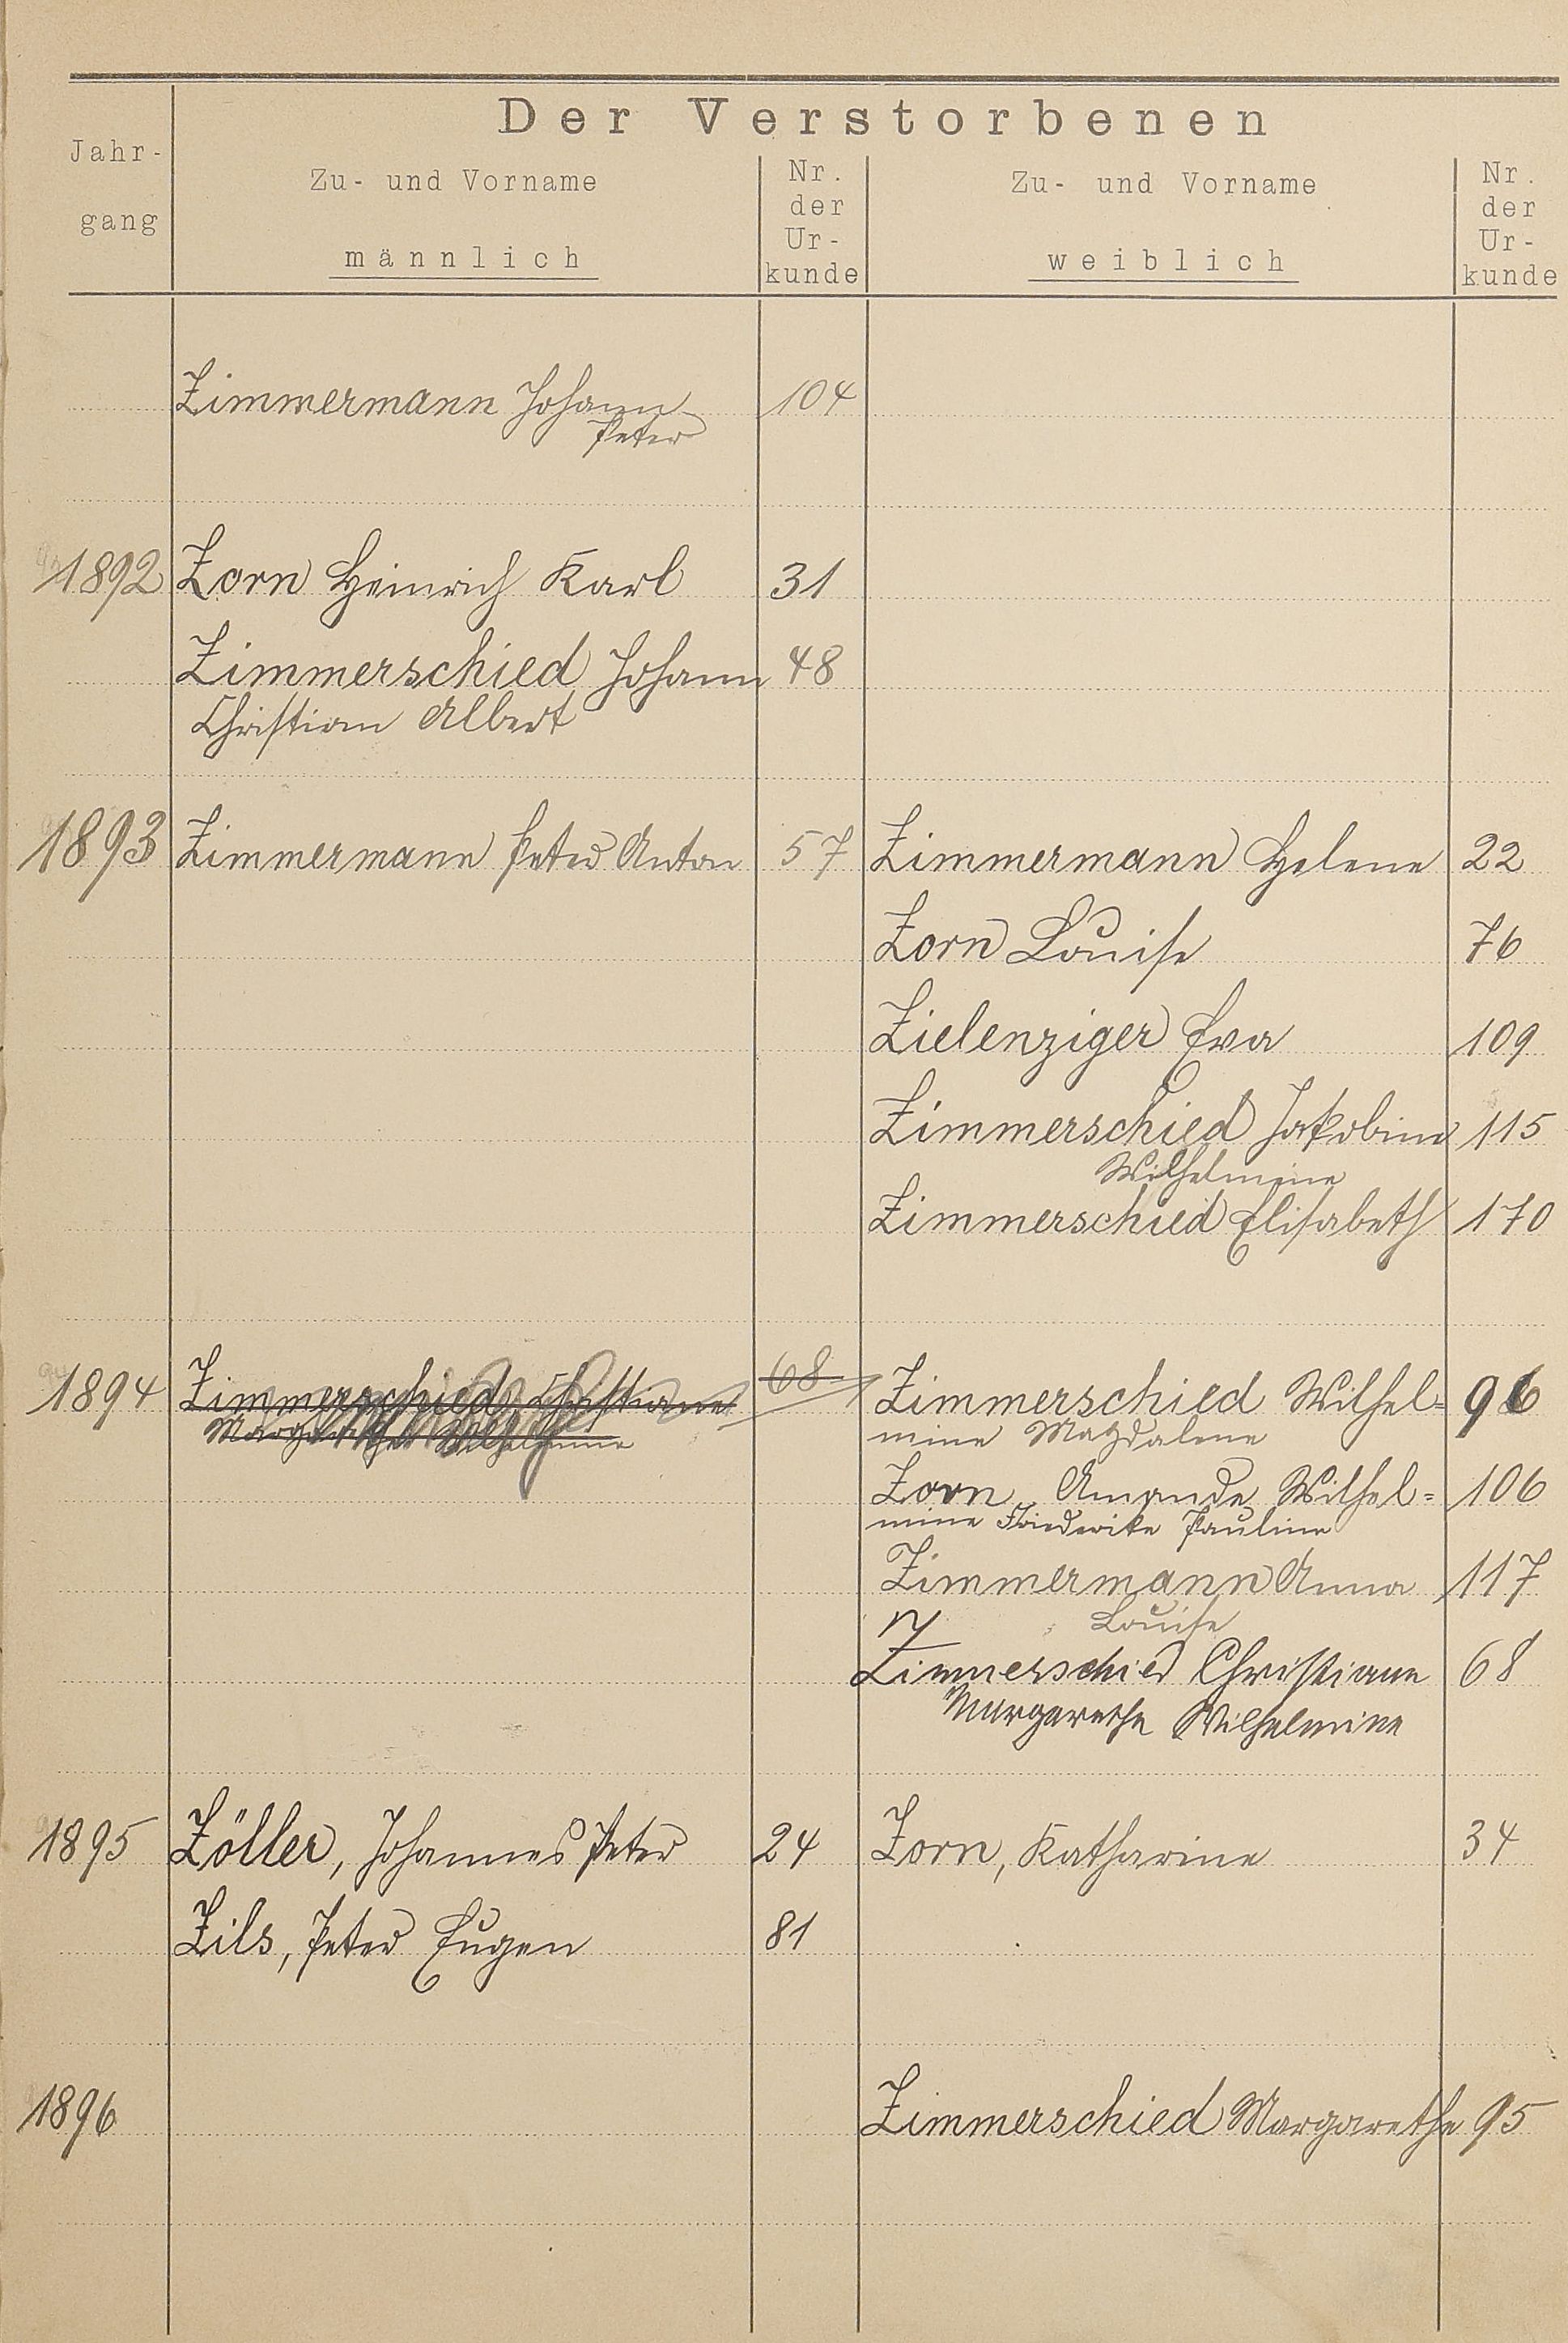 Der Verstorbenen
Jahr-
gang
Zu- und Vorname
männlich
Nr.
der
Ur-
kunde
Zu- und Vorname
weiblich
Nr.
der
Ur-
kunde
Zimmermann Johann 104
Peter
1892 Zorn Heinrich Karl 31
Zimmerschied Johann 48
Christian Albert
1893 Zimmermann Peter Anton 57 Zimmermann Helene 22
Zorn Louise 76
Zielenziger Eva 109
Zimmerschied Jakobine 115
Wilhelmine
Zimmerschied Elisabeth 170
1894 Zimmerschied Christiane 68 Zimmerschied Wilhel= 96
Margarethe Wilhelmine mine Magdalene
Zorn Amande Wilhel= 106
mine Friederike Pauline
Zimmermann Anna 117
Louise
Zimmerschied Christiane 68
Margarethe Wilhelmine
1895 Zöller, Johannes Peter 24 Zorn, Katharine 34
Zils, Peter Eugen 81
1896 Zimmerschied Margarethe 95